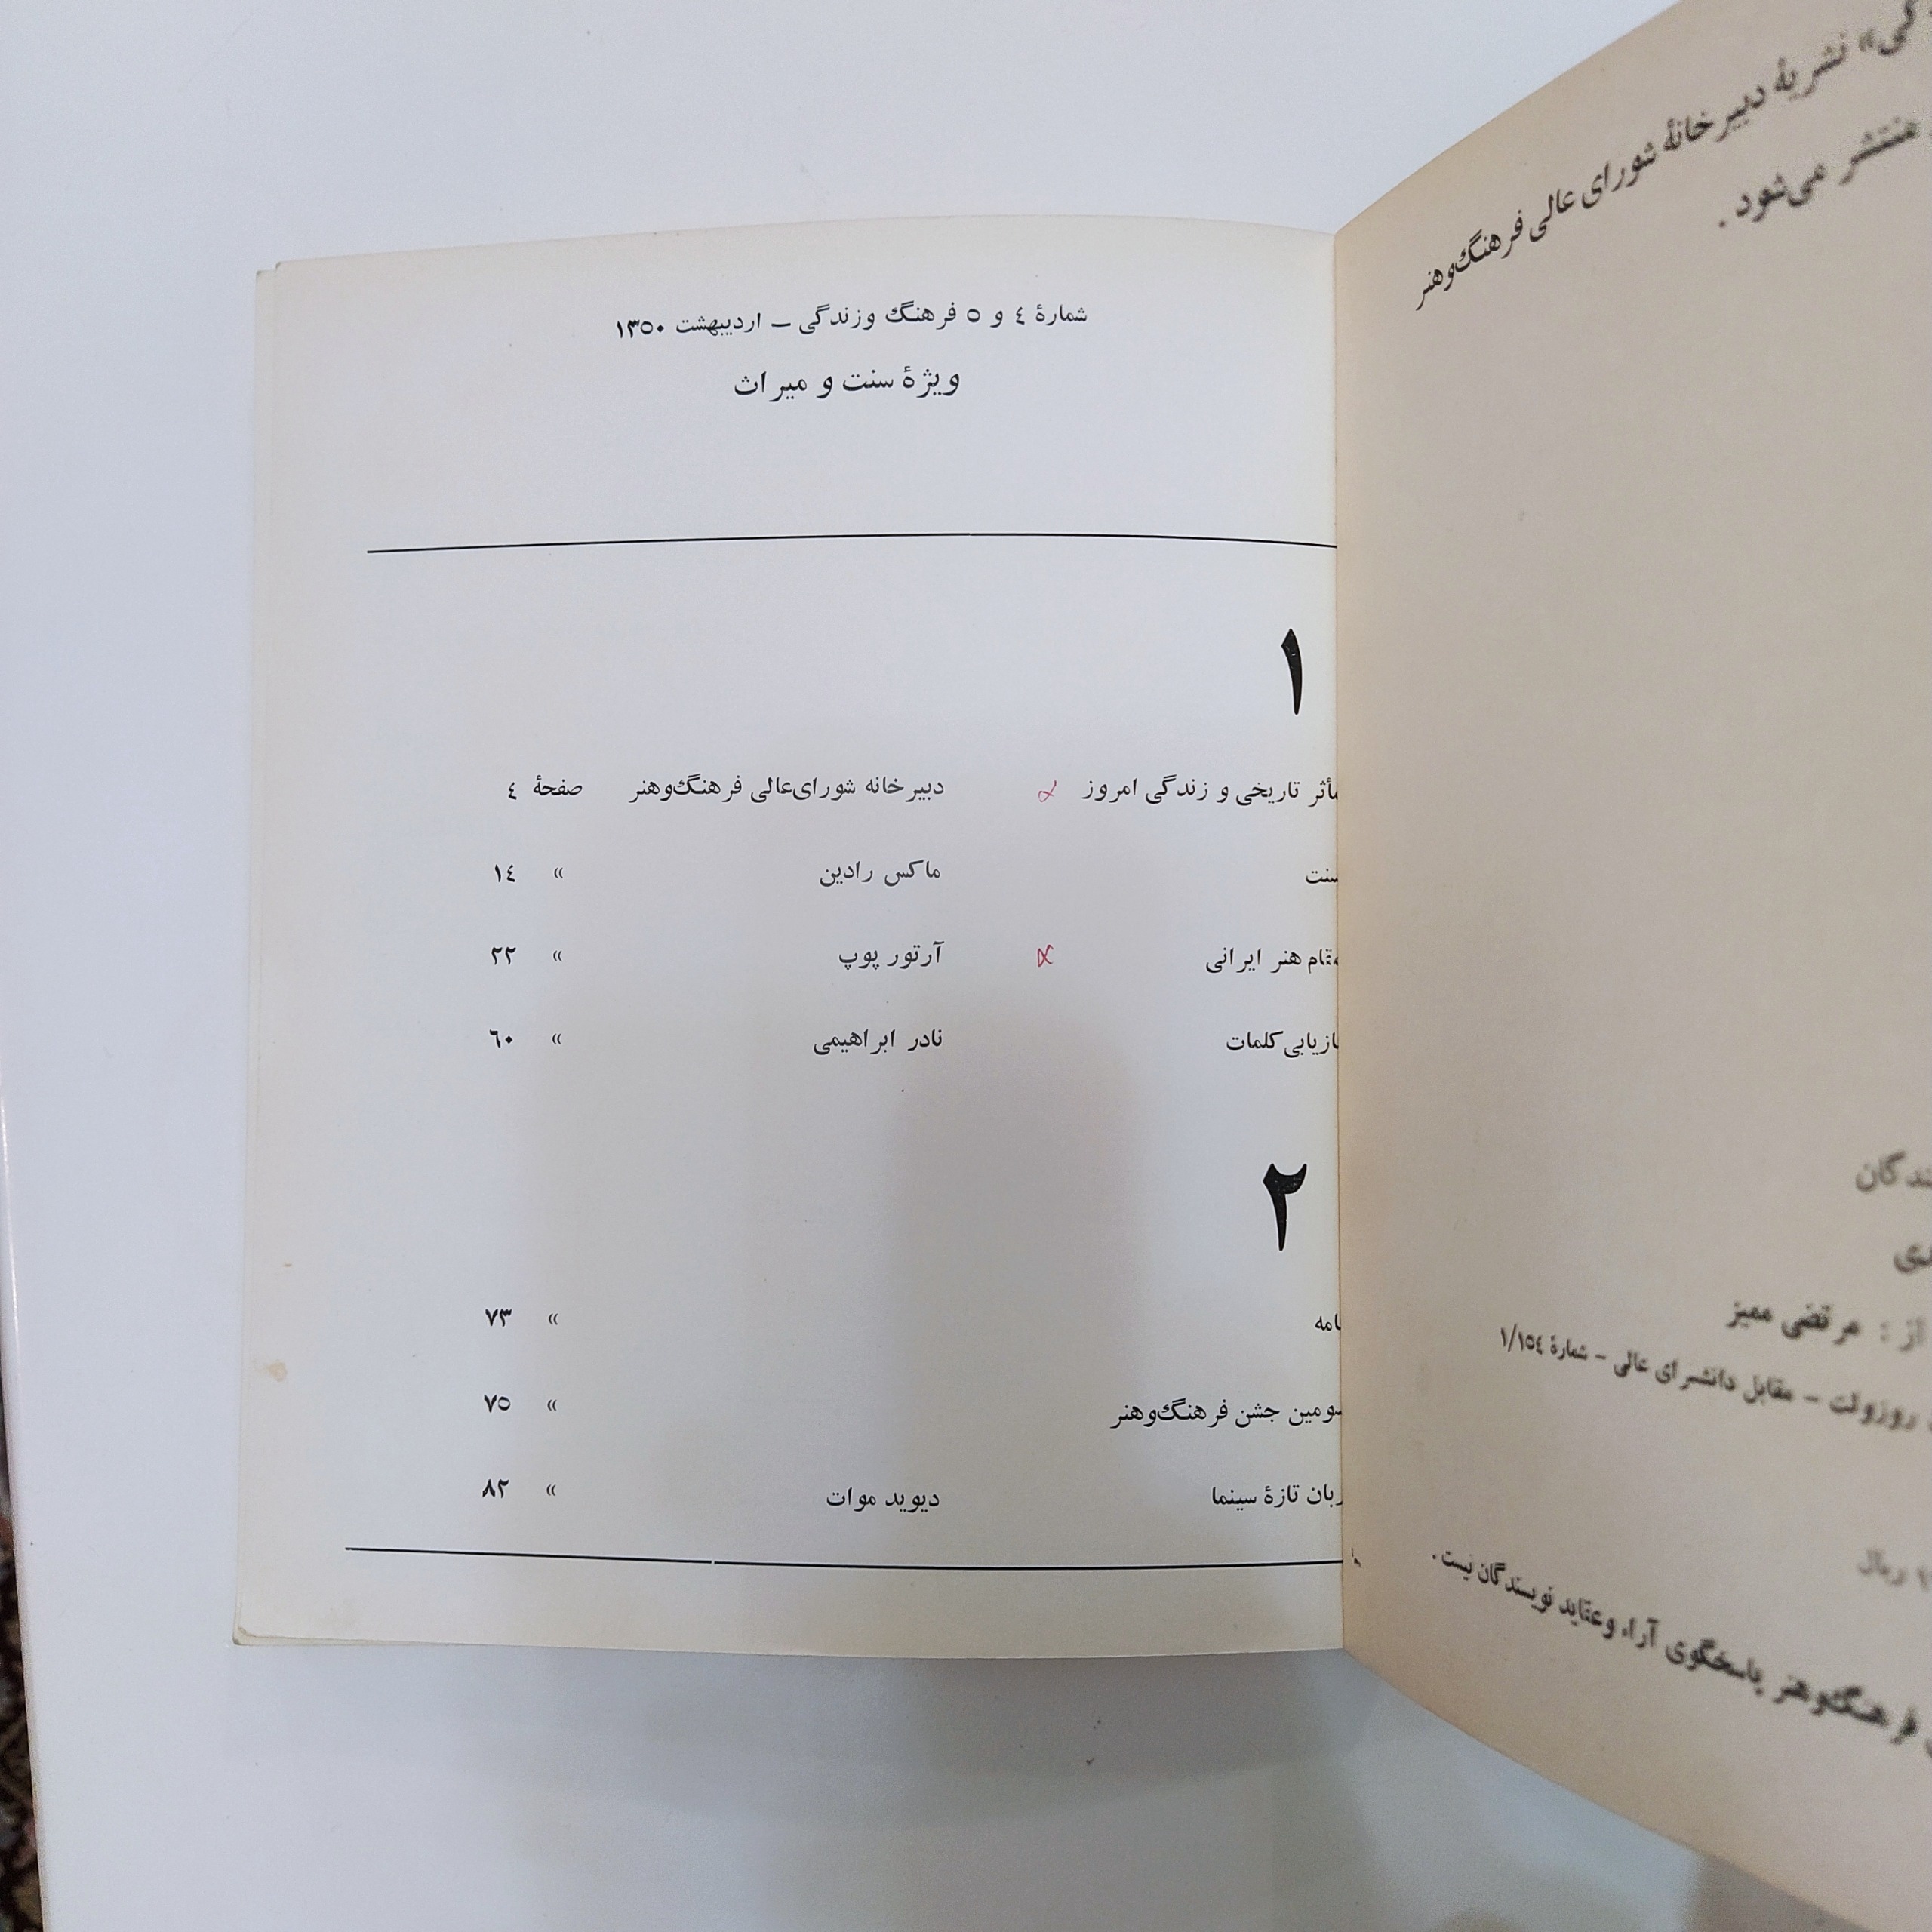 نشریهٔ دبیرخانهٔ شورای عالی فرهنگ‌وهنر
منتشر می‌شود .
از : مرتضی ممیز
روزولت – مقابل دانشسرای عالی – شمارهٔ ۱/۱۵٤
ریال
فرهنگ‌وهنر پاسخگوی آراء وعقاید نویسندگان نیست .
شمارهٔ ٤ و ۵ فرهنگ وزندگی – اردیبهشت ۱۳۵۰
ویژهٔ سنت و میراث
۱
مأثر تاریخی و زندگی امروز دبیرخانه شورای‌عالی فرهنگ‌وهنر صفحهٔ ٤
سنت ماکس رادین » ۱٤
مقام هنر ایرانی آرتور پوپ » ۲۲
بازیابی کلمات نادر ابراهیمی » ٦۰
۲
» ۷۳
سومین جشن فرهنگ‌وهنر » ۷۵
زبان تازهٔ سینما دیوید موات » ۸۲